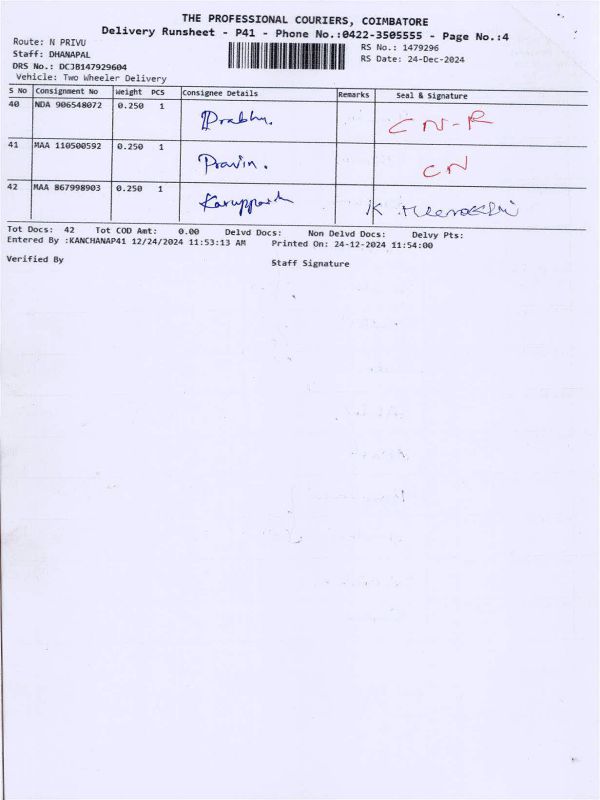 THE PROFESSIONAL COURIERS, COIMBATORE
Delivery Runsheet - P41 - Phone No.:0422-3505555 - Page No.:4
Route: N PRIVU
RS No.: 1479296
Staff: DHANAPAL
RS Date: 24-Dec-2024
DRS No.: DCJB147929604
Vehicle: Two Wheeler Delivery
S No Consignment No Weight PCS Consignee Details Remarks Seal & Signature
40 NDA 906548072 0.250 1 Prabhu. CN-R
41 MAA 110500592 0.250 1 Pravin. CN
42 MAA 867998903 0.250 1 K
Tot Docs: 42 Tot COD Amt: 0.00 Delvd Docs: Non Delvd Docs: Delvy Pts:
Entered By :KANCHANAP41 12/24/2024 11:53:13 AM Printed On: 24-12-2024 11:54:00
Verified By
Staff Signature